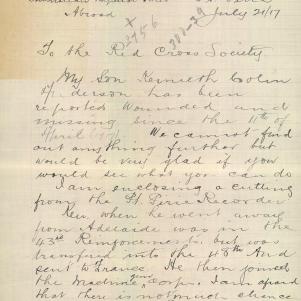 Abroad
July 21/17
3456
To the Red Cross Society
My Son Kenneth Colin
has been
reported Wounded and
missing since the 11th of
April 1917. We cannot find
out anything further but
would be very glad if you
would see what you can do
I am enclosing a cutting
from the Pt Pirie Recorder
Ken, when he went away
from Adelaide was in the
Reinforcements but was
transfered into the 48th And
sent to France. He then joined
the Machine Gun Corps. I am afraid
that there is not much chance